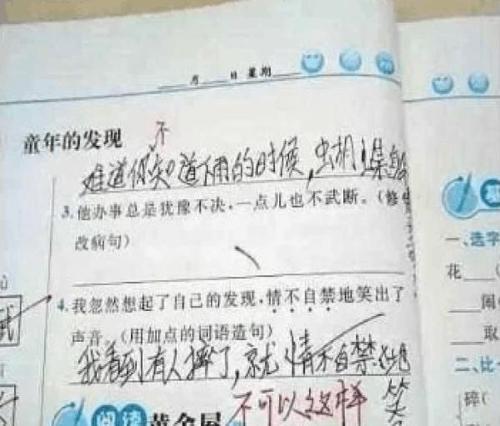 月 日 星期
童年的发现
不
难道你知道下雨的时候,
3.他办事总是犹豫不决,一点儿也不武断。(修
改病句)
4.我忽然想起了自己的发现,情不自禁地笑出了
声音。(用加点的词语造句)
我看到有人摔了,就情不自禁地
笑
不可以这样
阅读
一、选字
花
闹
取
二、比一
碎(